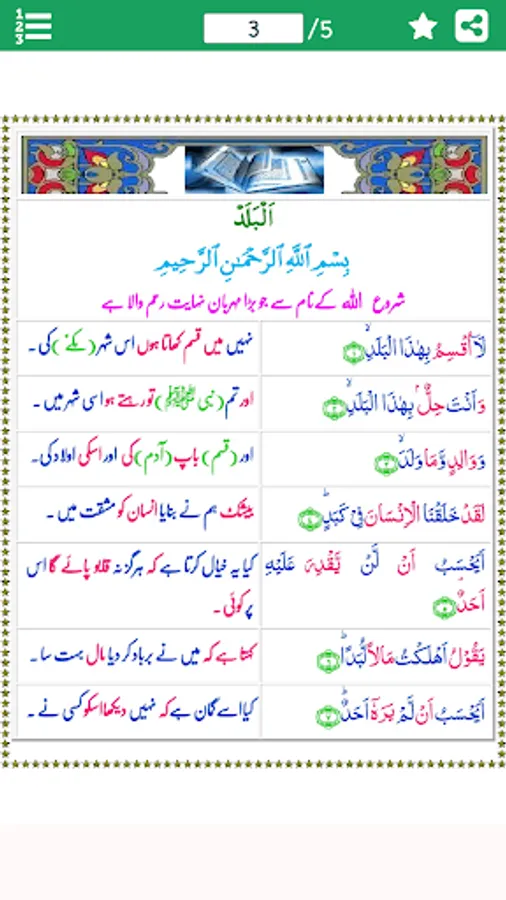 1
2
3
3 /5
اَلْبَلَدْ
بِسْمِ اللّٰهِ الرَّحْمٰنِ الرَّحِيمِ
شروع اللہ کے نام سے جو بڑا مہربان نہایت رحم والا ہے
لَاۤ اُقْسِمُ بِهٰذَا الْبَلَدِۙ ۝۱
نہیں میں قسم کھاتا ہوں اس شہر (مکۂ) کی۔
وَاَنْتَ حِلٌّۢ بِهٰذَا الْبَلَدِۙ ۝۲
اور تم (نبی ﷺ) تو رہتے ہو اسی شہر میں۔
وَوَالِدٍ وَّمَا وَلَدَۙ ۝۳
اور (قسم) باپ (آدم) کی اور اسکی اولاد کی۔
لَقَدْ خَلَقْنَا الْاِنْسَانَ فِیْ كَبَدٍؕ ۝۴
بیشک ہم نے بنایا انسان کو مشقت میں۔
اَيَحْسَبُ اَنْ لَّنْ يَّقْدِرَ عَلَيْهِ
اَحَدٌۘ ۝۵
کیا یہ خیال کرتا ہے کہ ہرگز نہ قابو پائے گا اس
پر کوئی۔
يَقُوْلُ اَهْلَكْتُ مَالًا لُّبَدًاؕ ۝۶
کہتا ہے کہ میں نے برباد کر دیا مال بہت سا۔
اَيَحْسَبُ اَنْ لَّمْ يَرَهٗۤ اَحَدٌؕ ۝۷
کیا اسے گمان ہے کہ نہیں دیکھا اسکو کسی نے۔